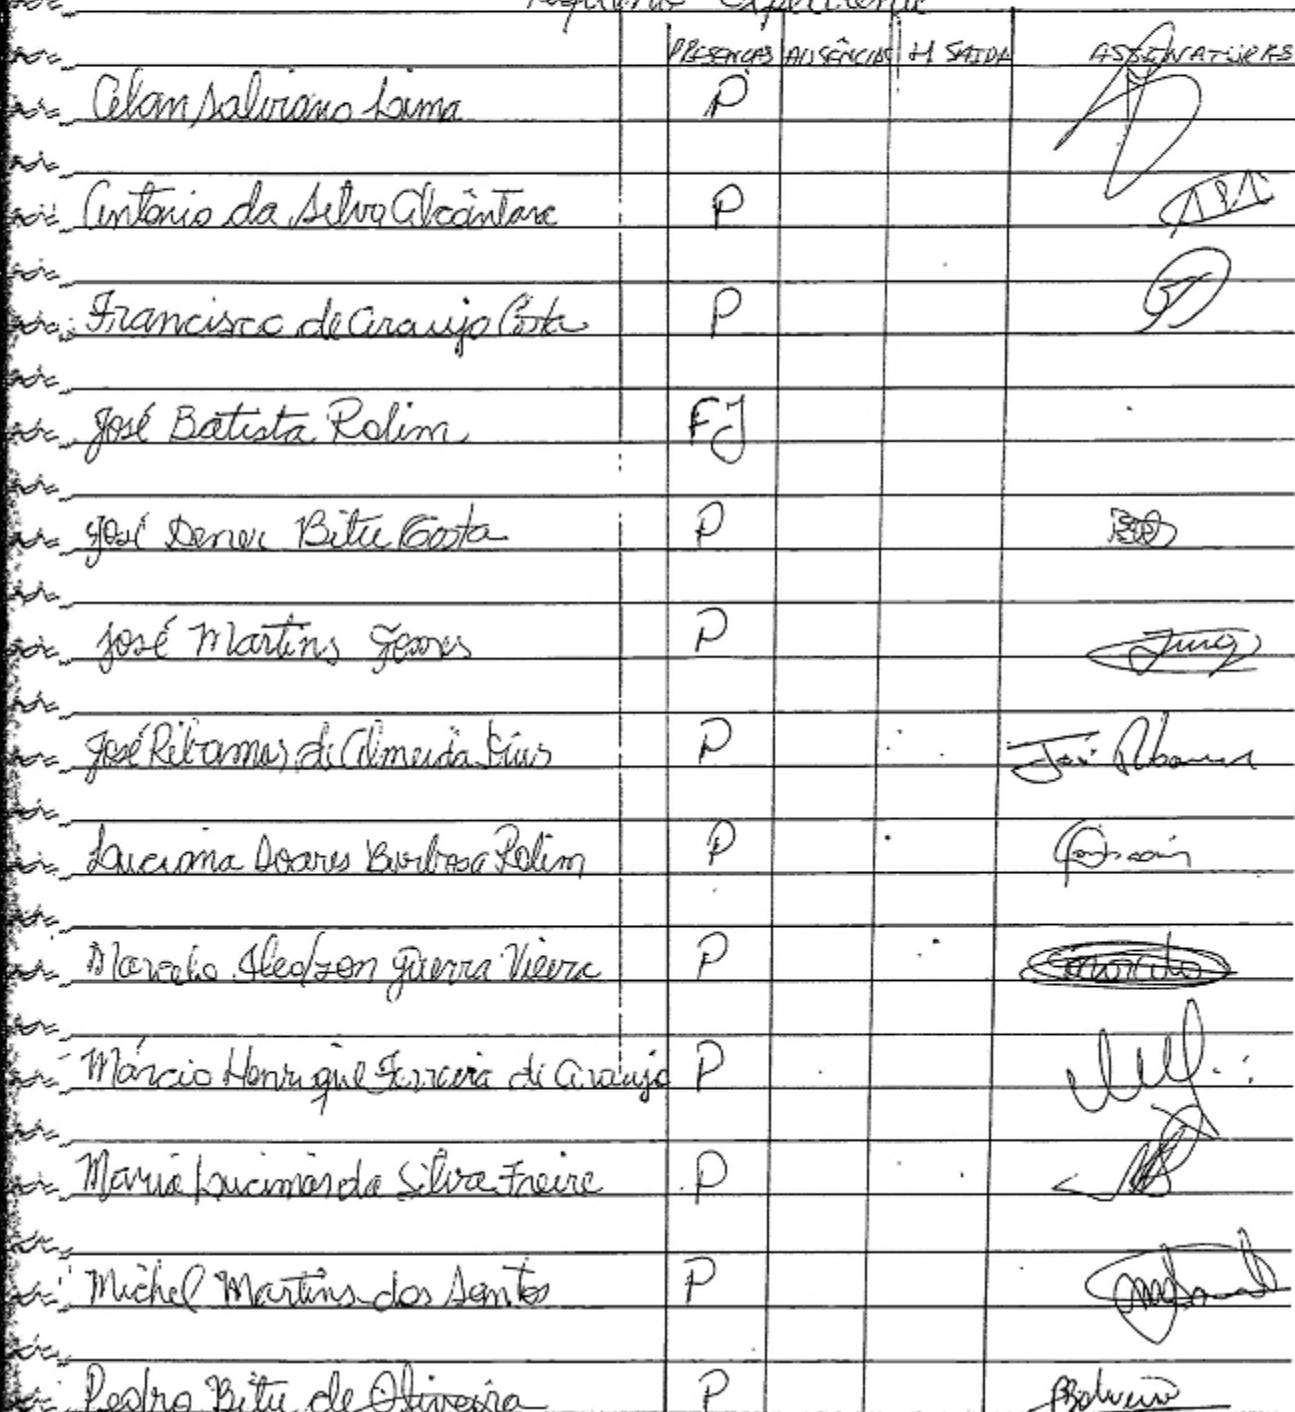 Pequeno Expediente
PRESENÇAS AUSÊNCIAS H SAIDA ASSINATURAS
Alan Salviano Lima P
Antonio da Silva Alcântara P
Francisco de Araujo Costa P
José Batista Rolim FJ
José Dener Bitu Costa P
José Martins Gomes P
José Ribamar de Almeida P José Ribamar
Luciana Soares Barbosa Rolim P
Marcelo Gledson Guerra Vieira P
Márcio Henrique Ferreira de Araujo P
Maria Lucimar da Silva Freire P
Michel Martins dos Santos P
Pedro Bitu de Oliveira P